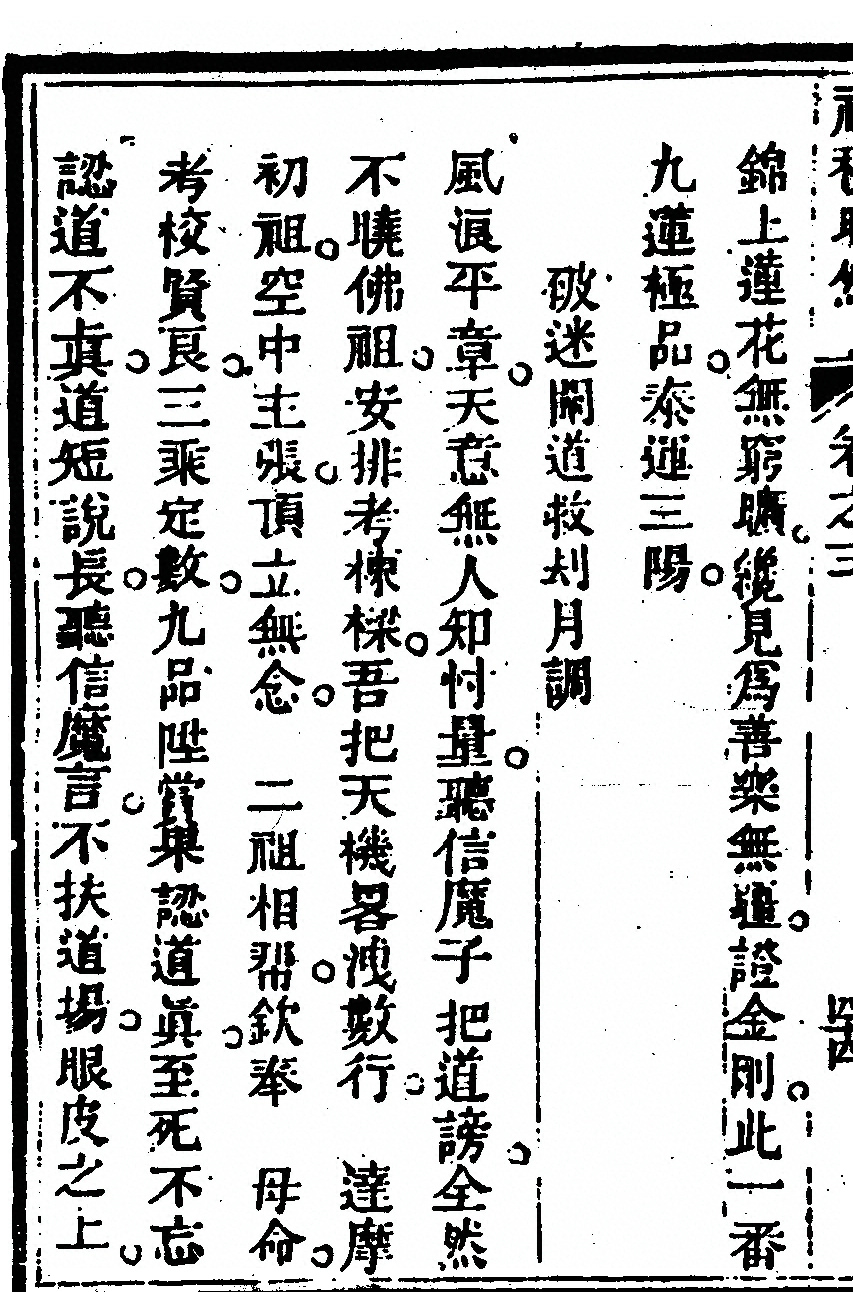 錦上蓮花無窮曠。纔見爲善樂無疆。證金剛。此一番
九蓮極品。泰運三陽。
破迷開道救刼月調
風浪平章。天意無人知忖量。聽信魔子把道謗。全然
不曉佛祖。安排考棟樑。吾把天機畧洩數行。達摩
初祖。空中主張。頂立無念。二祖相帮。欽奉 母命。
考校賢良。三乘定數。九品陞賞。果認道眞。至死不忘。
認道不眞。道短說長。聽信魔言。不扶道場。眼皮之上。
卷之三